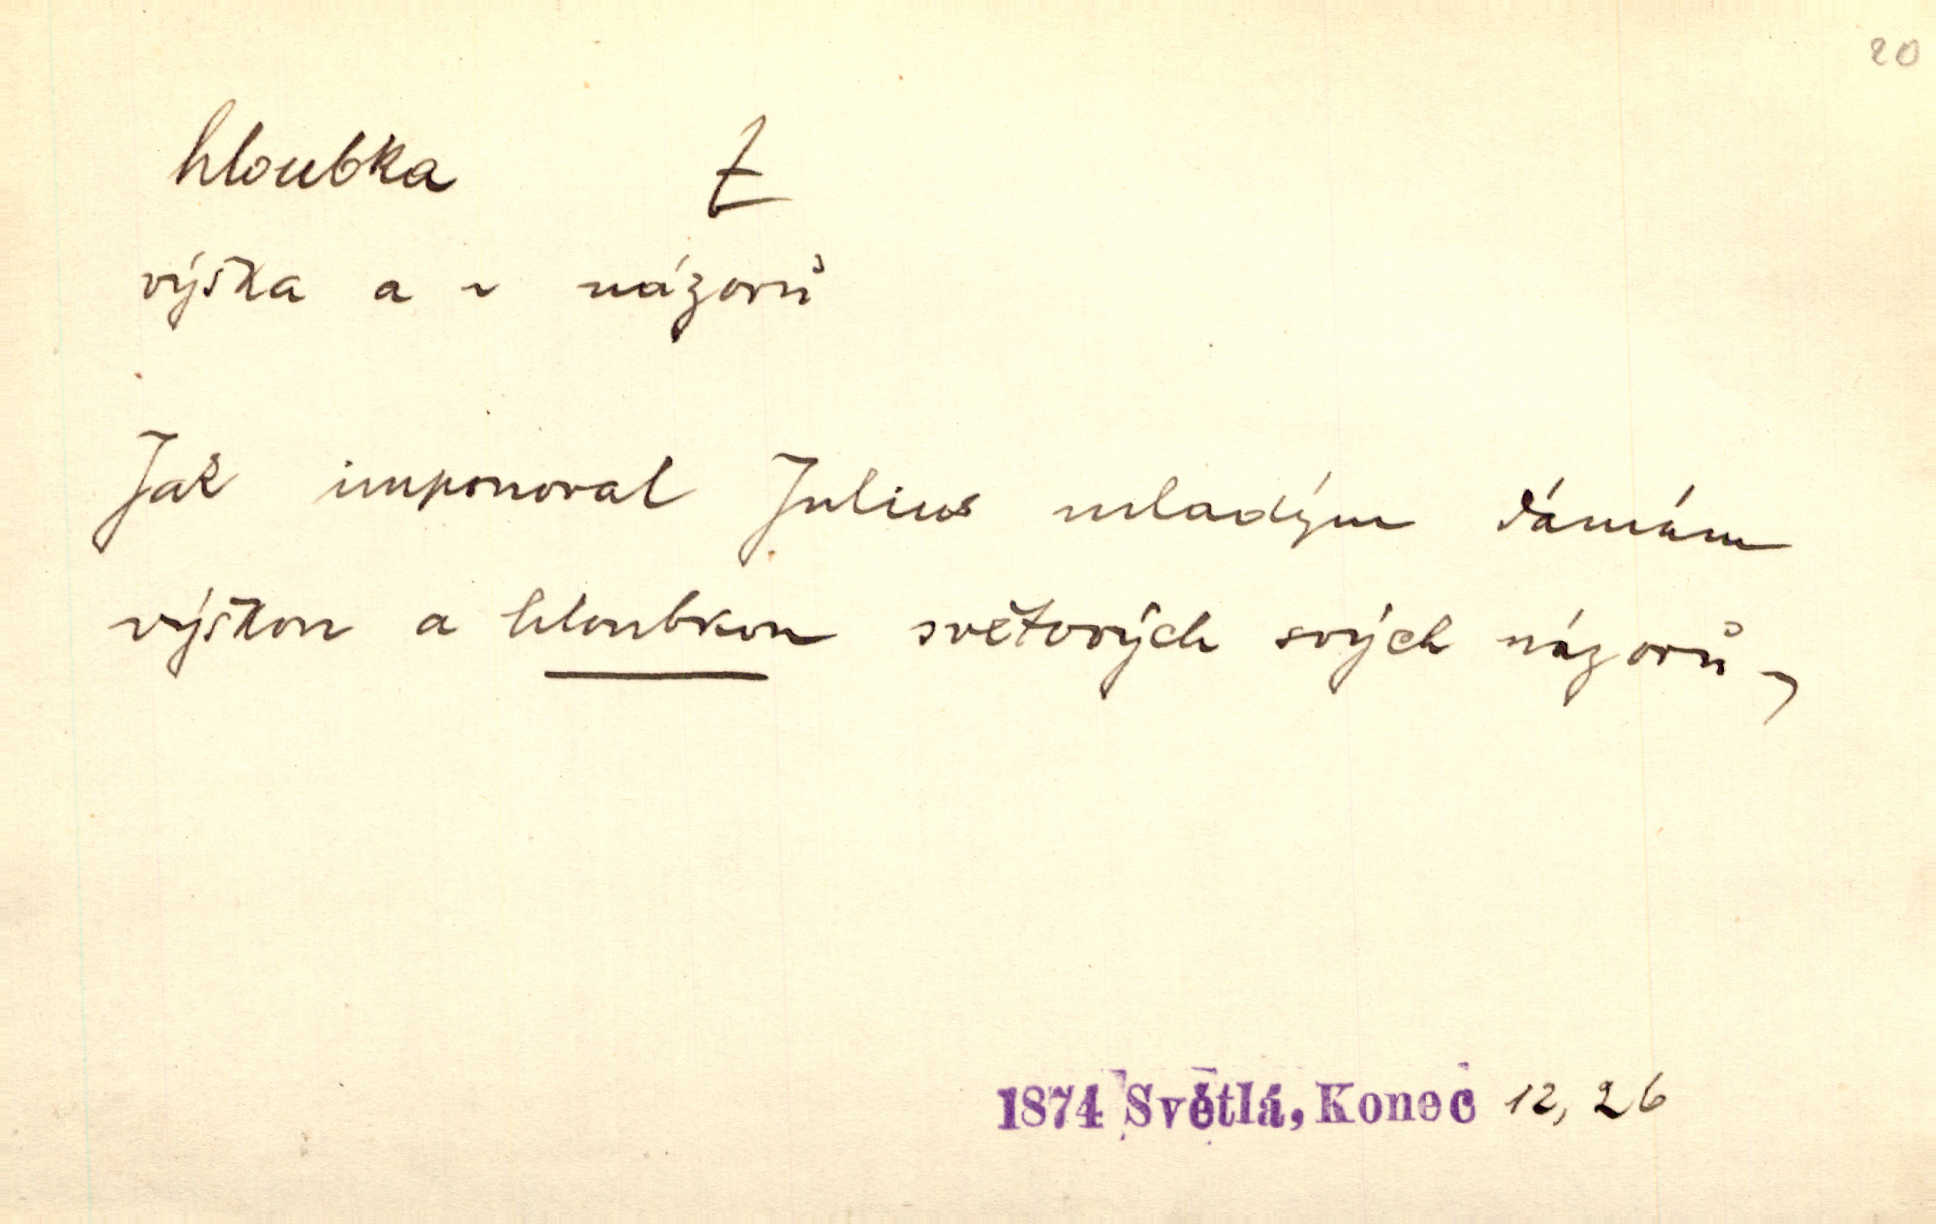 20
hloubka Ł
výška a ~ názorů
Jak imponoval Julius mladým dámám
výškou a hloubkou světových svých názorů,
1874 Světlá, Konec 12, 26